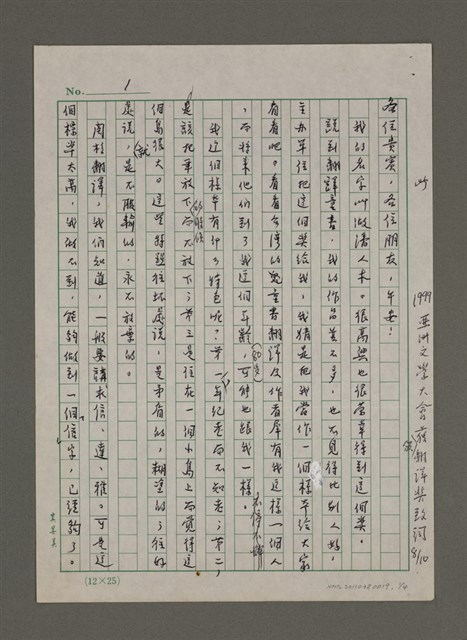 No. 1
1999 亞洲文學大會藝翻譯獎致詞 8/10
各位貴賓，各位朋友，午安！
我的名字叫做潘人木。很高興也很榮幸得到這個獎。
說到翻譯童書，我的作品並不多，也不見得比別人好，
主辦單位把這個獎給我，我猜是把我當作一個樣本給大家
看看吧。看看台灣的兒童書翻譯及作者犀有我這樣一個人
，而將來他們到了我這個年齡，(80歲)可能也跟我一樣。
我這個樣本有什么特色呢？第一年紀老而不知老；第二，
是該把筆放下而不放下；第三是住在一個小島上而覺得這
個島很大。這些特徵往壞處說，是矛盾的，糊塗的；往好
處說，就是不服輸的，永不放棄的。
關於翻譯，我們知道，一般要講求信、達、雅。可是這
個標準太高，我做不到，能夠做到一個信字，已經夠了。
(12×25)